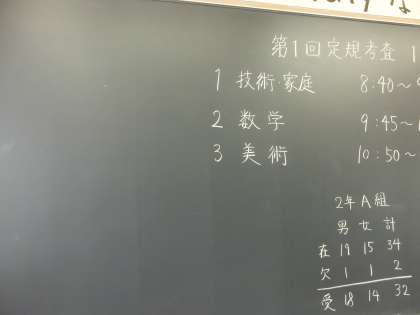 第1回定規考査 1
1 技術・家庭 8:40〜
2 数学 9:45〜
3 美術 10:50〜
2年A組
男 女 計
在 19 15 34
欠 1 1 2
受 18 14 32